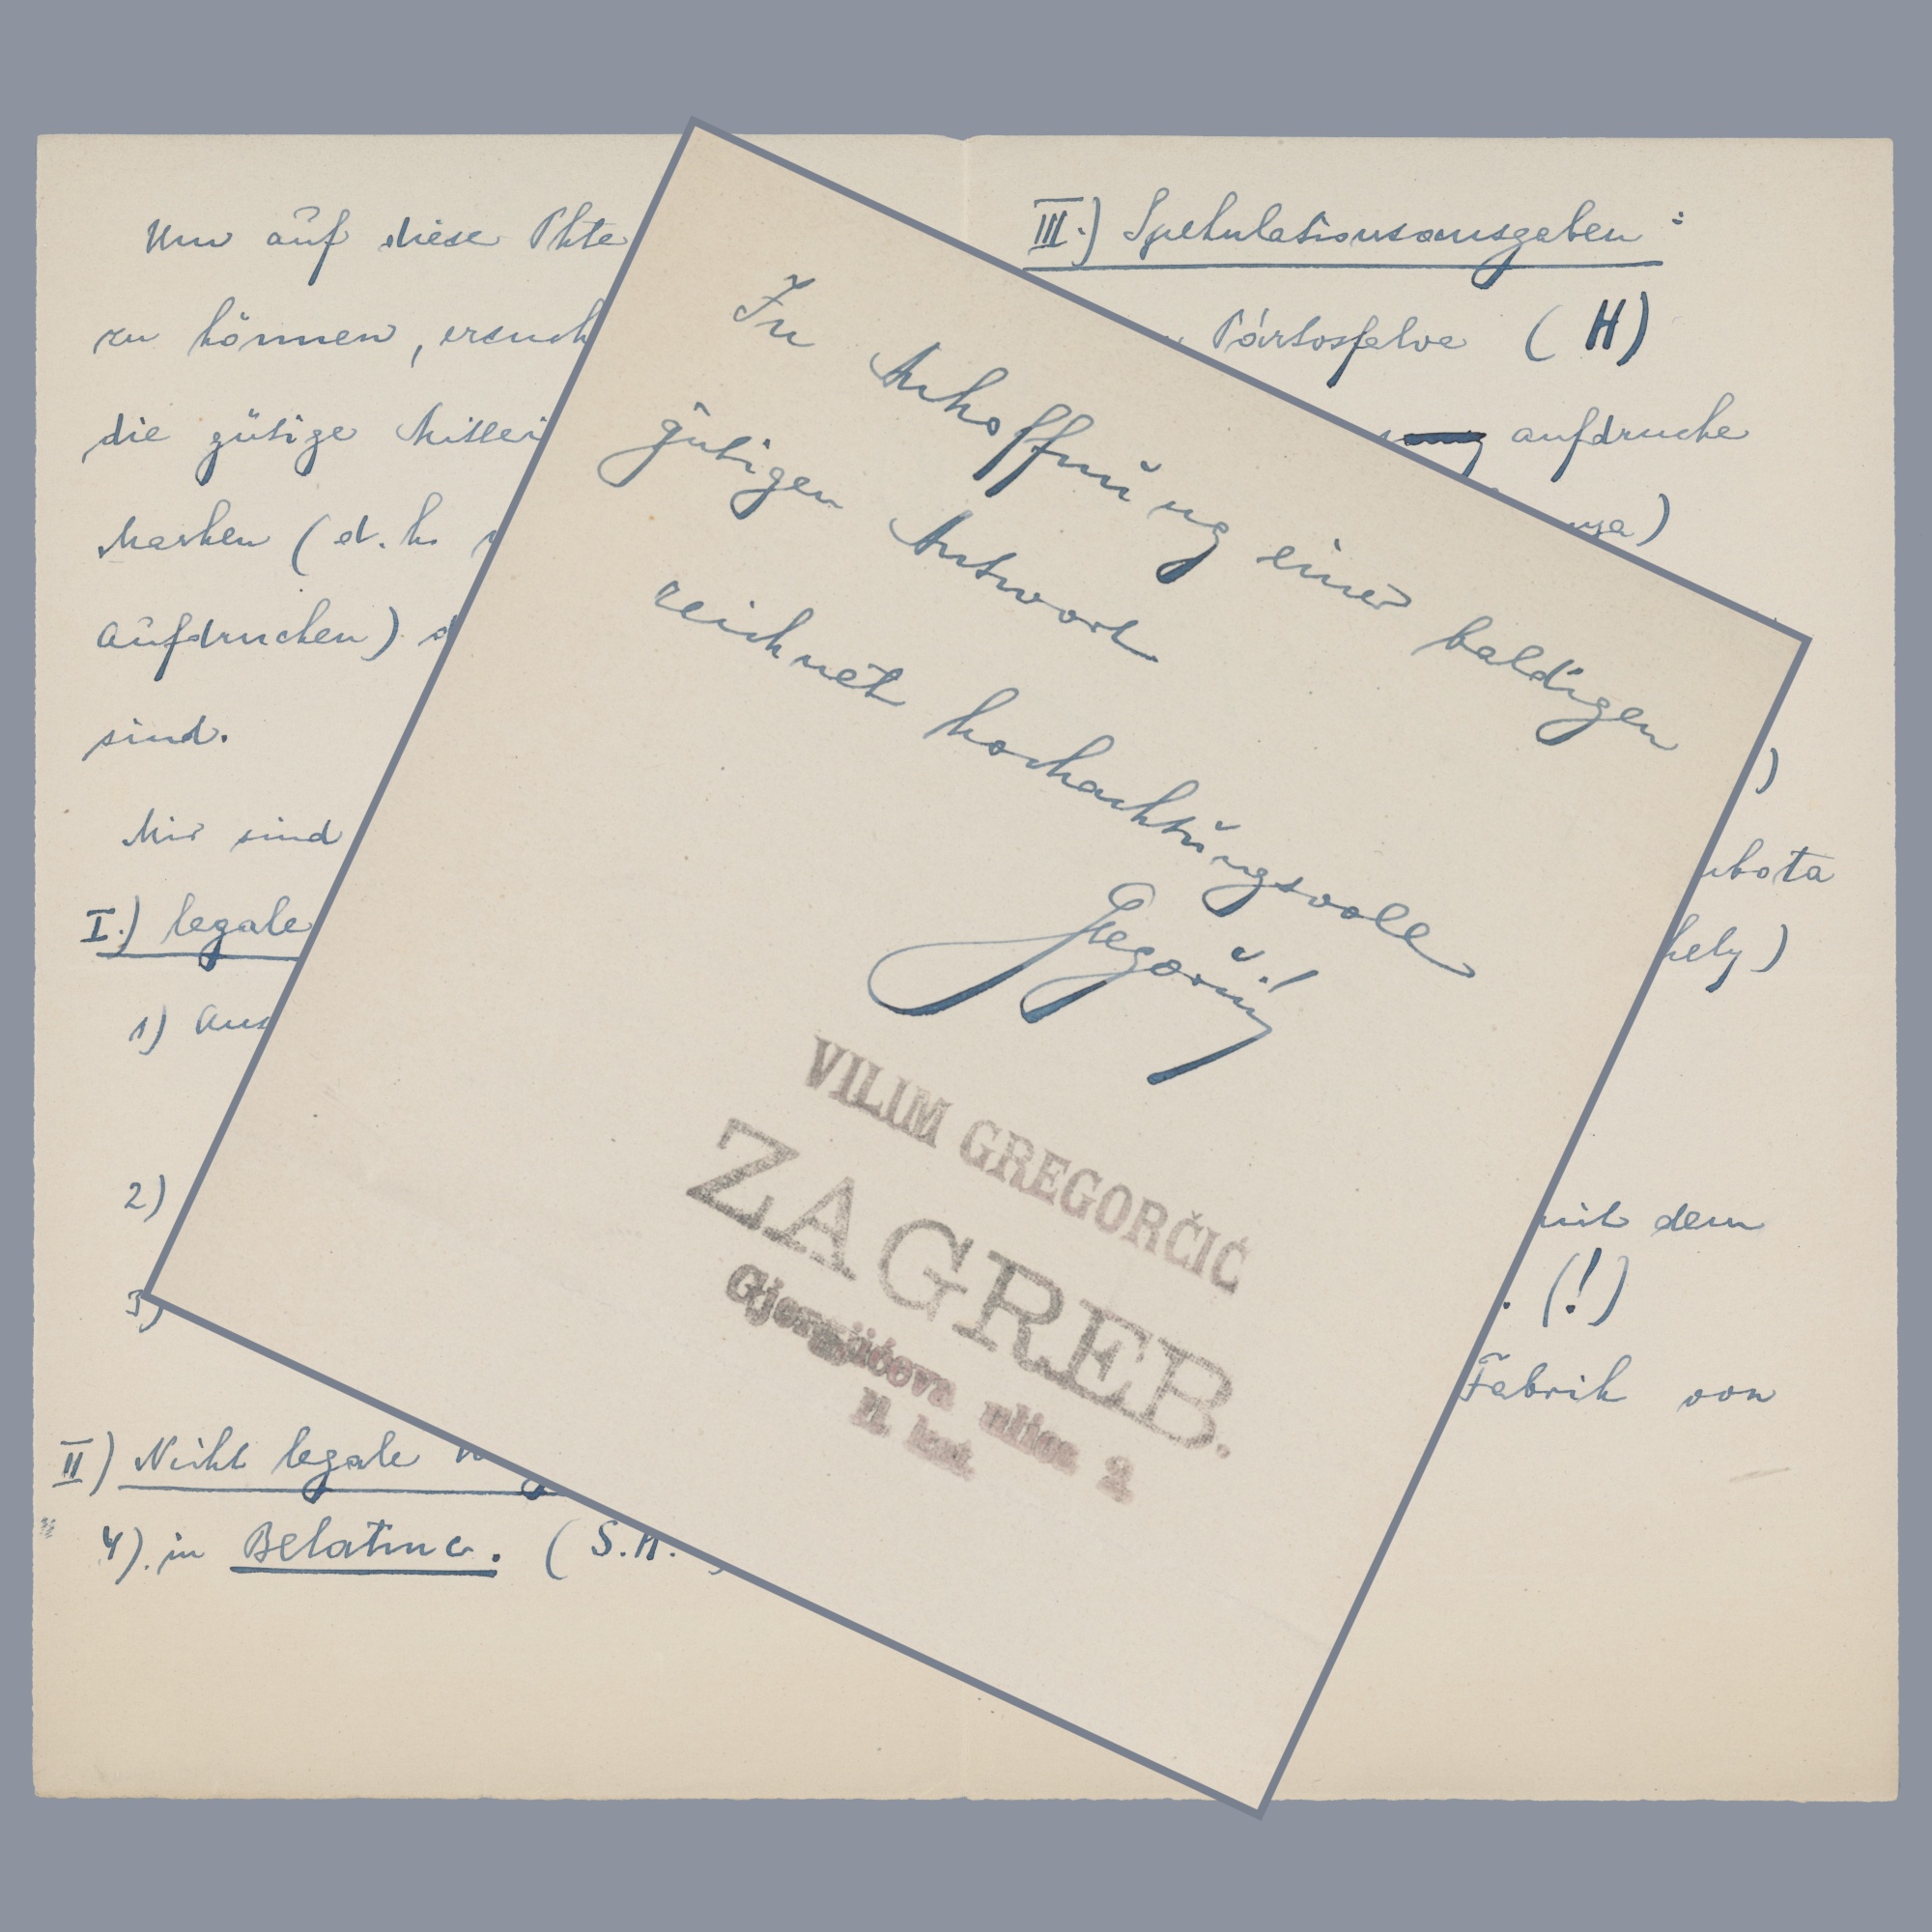 Um auf diese Pkte
zu können, ersuch
die gütige Mittei
Marken (d.h.
Aufdrucken)
sind.
Mir sind
I.) legale
1) Aus
2)
3)
II) Nicht legale
4). in Belatinc. (S.H.
III.) Spekulationsausgaben:
Pártosfalva (H)
aufdrucke
)
)
ubota
hely)
mit dem
. (!)
Fabrik von
In Anhoffnung einer baldigen
gütigen Antwort
zeichnet hochachtungsvoll
Gregorčić
VILIM GREGORČIĆ
ZAGREB.
ulica 2
II. kat.